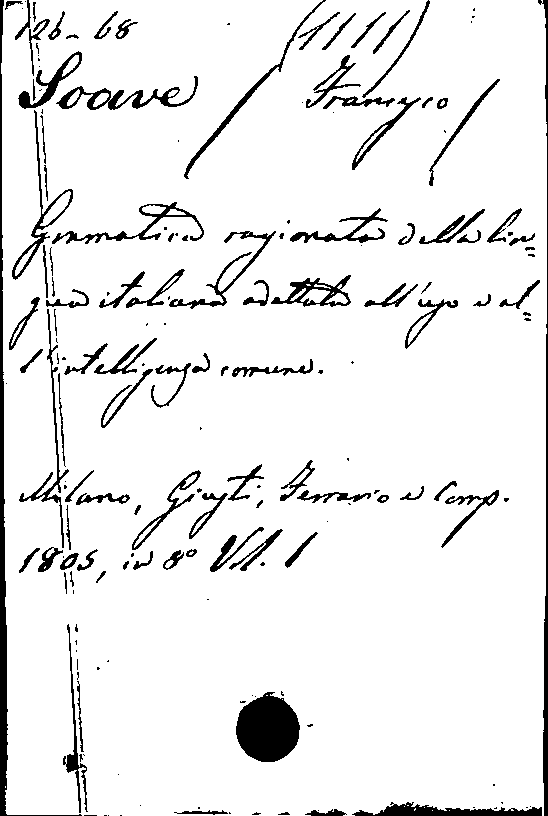 126-68 (1111)
Soave / Francesco /
Grammatica ragionata della lin=
gua italiana adattata all'uso e al=
l'intelligenza comune.
Milano, Giusti, Ferrario e Comp.
1805, in 8° Vol. 1